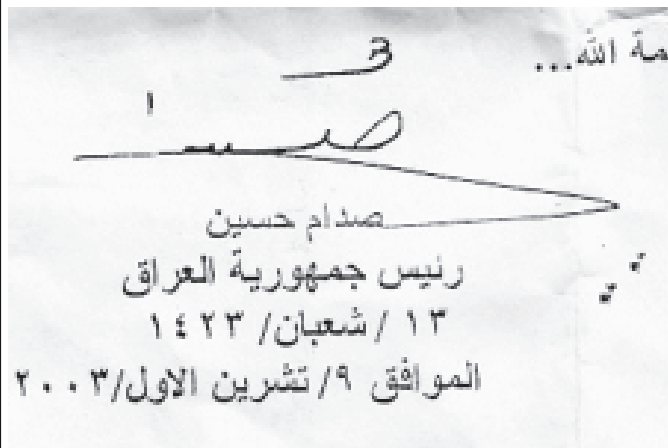 مة الله...
صدام حسين
رئيس جمهورية العراق
١٣ /شعبان/ ١٤٢٣
الموافق ٩/ تشرين الاول/٢٠٠٣